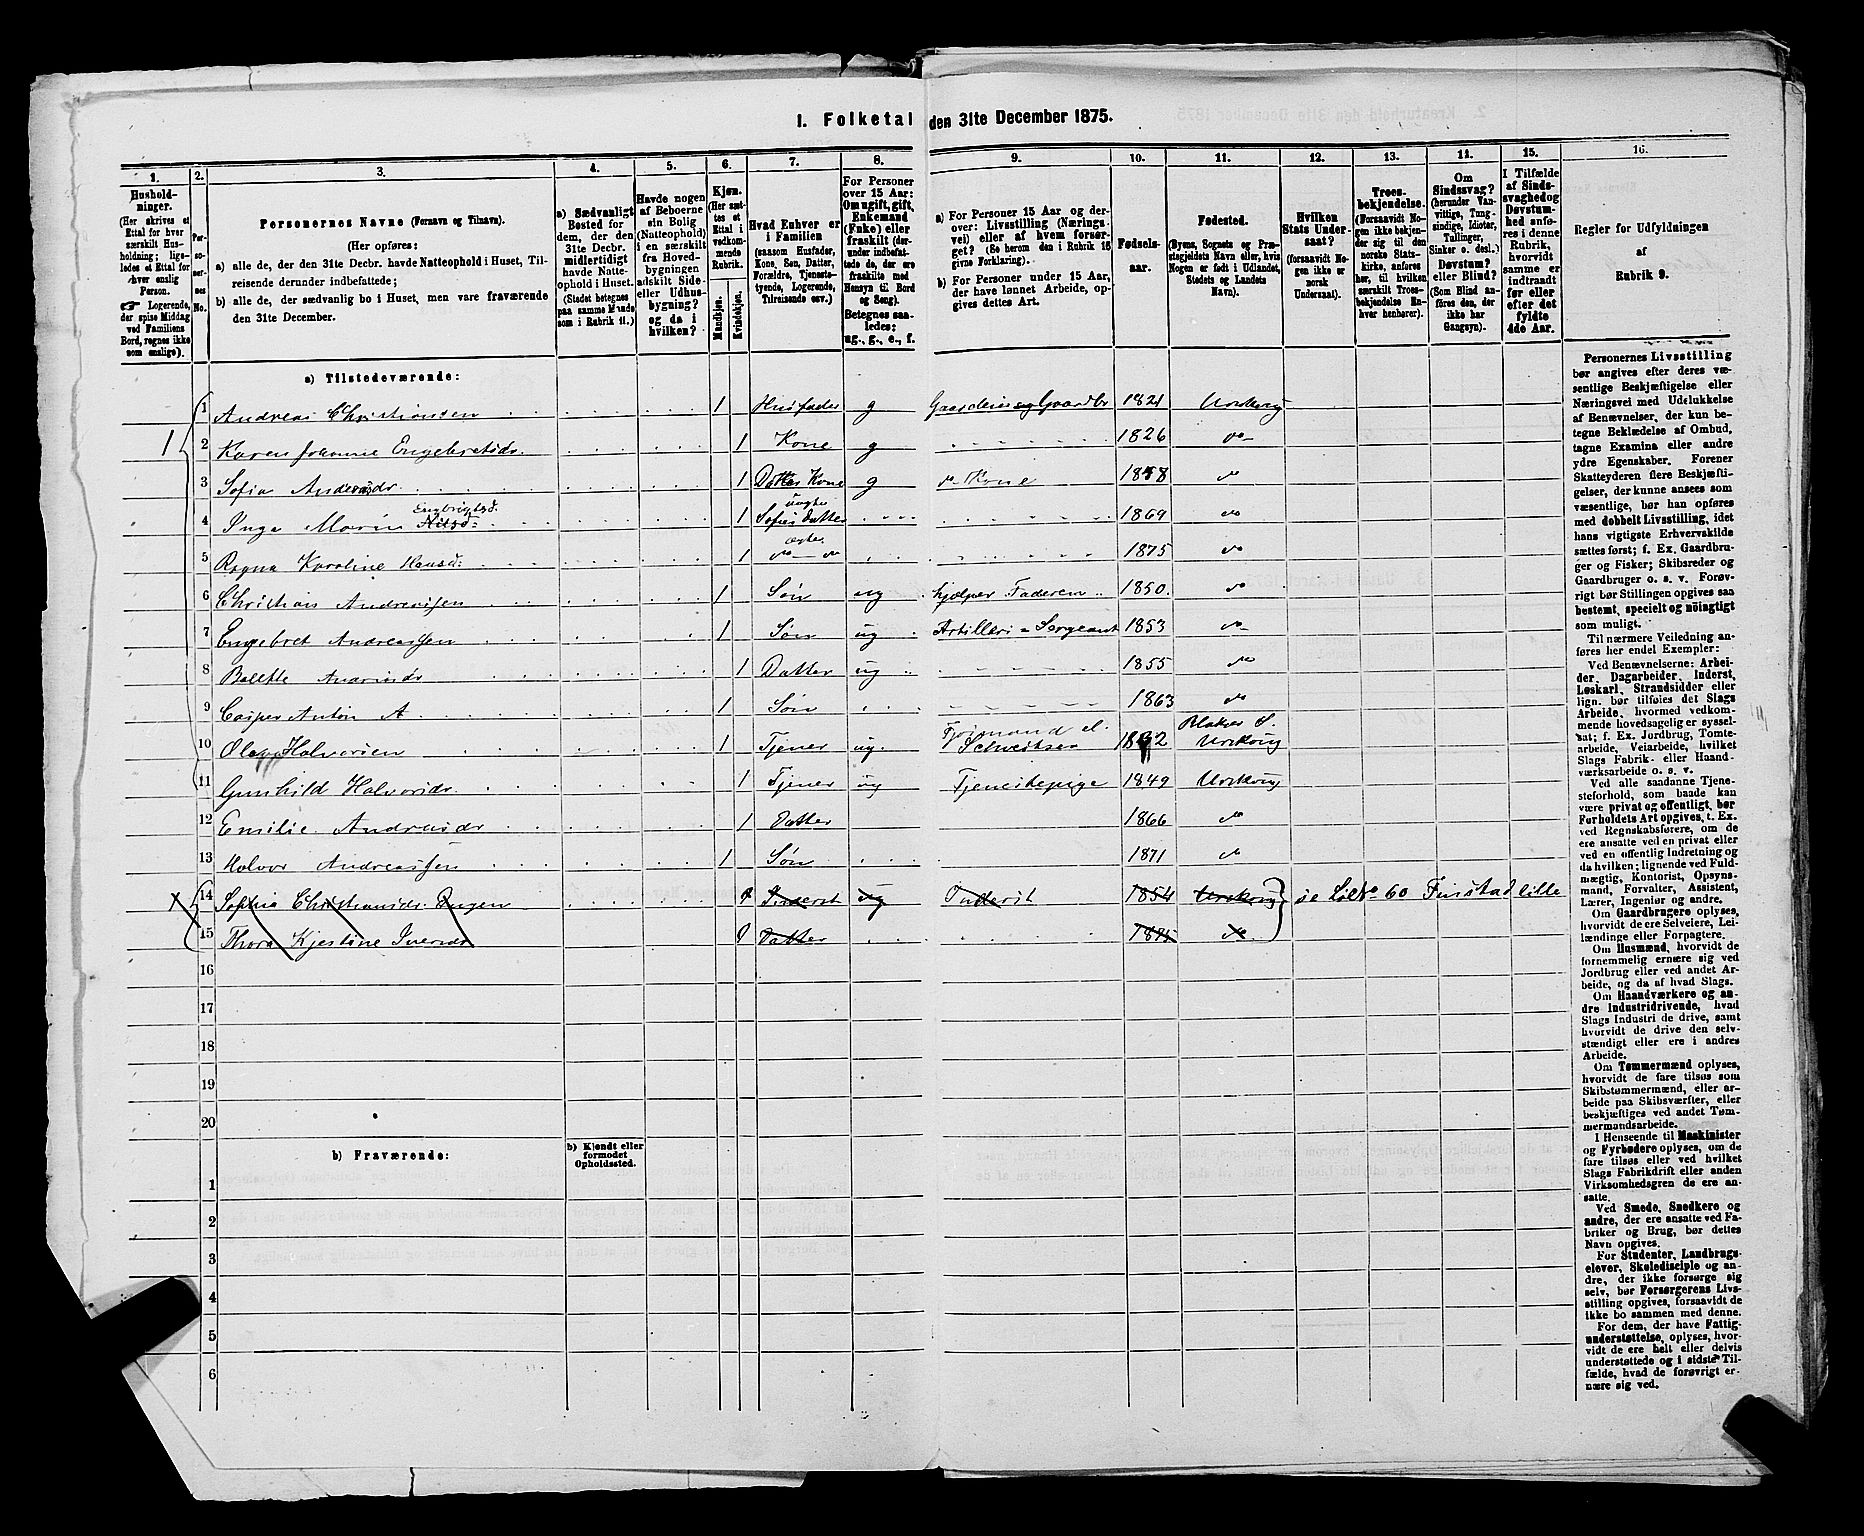 1. Folketal den 31te December 1875.
1. 2. 3. 4. 5. 6. 7. 8. 9. 10. 11. 12. 13. 14. 15. 16.
Hushold-
ninger.
(Her skrives et
Ettal for hver
særskilt Hus-
holdning; lige-
ledes et Ettal for
hver enslig
Person.
☞ Logerende,
der spise Middag
ved Familiens
Bord, regnes ikke
som enslige).
Per-
so-
ner-
nes
No.
Personernes Navne (Fornavn og Tilnavn).
(Her opføres:
a) alle de, der den 31te Decbr. havde Natteophold i Huset, Til-
reisende derunder indbefattede;
b) alle de, der sædvanlig bo i Huset, men vare fraværende
den 31te December.
a) Sædvanligt
Bosted for
dem, der den
31te Decbr.
midlertidigt
havde Natte-
ophold i Huset.
(Stedet betegnes
paa samme Maade
som i Rubrik 11.)
Havde nogen
af Beboerne
sin Bolig
(Natteophold)
i en særskilt
fra Hoved-
bygningen
adskilt Side-
eller Udhus-
bygning?
og da i
hvilken?
Kjøn.
(Her sæt-
tes et
Ettal i
vedkom-
mende
Rubrik.)
Mandkjøn.
Kvindekjøn.
Hvad Enhver er
i Familien
(saasom Husfader,
Kone, Søn, Datter,
Forældre, Tjeneste-
tyende, Logerende,
Tilreisende osv.)
For Personer
over 15 Aar:
Om ugift, gift,
Enkemand
(Enke) eller
fraskilt (der-
under indbefat-
tede de, der ere
fraskilte med
Hensyn til Bord
og Seng).
Betegnes saa-
ledes:
ug., g., e., f.
a) For Personer 15 Aar og der-
over: Livsstilling (Nærings-
vei) eller af hvem forsør-
get? (Se herom den i Rubrik 16
givne Forklaring).
b) For Personer under 15 Aar,
der have lønnet Arbeide, op-
gives dettes Art.
Fødsels-
aar.
Fødested.
(Byens, Sognets og Præ-
stegjeldets Navn eller, hvis
Nogen er født i Udlandet,
Stedets og Landets
Navn).
Hvilken
Stats Under-
saat?
(forsaavidt No-
gen ikke er
norsk
Undersaat).
Troes-
bekjendelse.
(Forsaavidt No-
gen ikke bekjen-
der sig til den
norske Stats-
kirke, anføres
her, til hvilken
særskilt Troes-
bekjendelse En-
hver henhører).
Om
Sindssvag?
(herunder Van-
vittige, Tung-
sindige, Idioter,
Tullinger,
Sinker o. desl.)
Døvstum?
eller Blind?
(Som Blind an-
føres den, der
ikke har
Gangsyn).
I Tilfælde
af Sinds-
svaghed og
Døvstum-
hed anfø-
res i denne
Rubrik,
hvorvidt
samme er
indtraadt
før eller
efter det
fyldte
4de Aar.
Regler for Udfyldningen
af
Rubrik 9.
a) Tilstedeværende:
1 1 Andreas Christiansen 1 Husfader g Gaardeier og Gaardbr 1821 Urskoug
2 Karen Johanne Engebretsdr. 1 Kone g 1826 do
3 Sofia Andreasdr. 1 Datter Kone g do Kone 1848 do
Engbrigtsd. uægte
4 Inga Marie 1 Sofies Datter 1869 do
ægte
5 Ragna Karoline Hansd: 1 do do 1875 do
6 Christian Andreassen 1 Søn ug hjælper Faderen 1850. do
7 Engebret Andreassen 1 Søn ug Artilleri-Sergeant 1853 do
8 Bolette Andreasdr 1 Datter ug 1855 do
9 Casper Anton A 1 Søn 1863 do
Fjøsmand el. Blaker S.
10 Olaf Halvorsen 1 Tjener ug. Schweitser 1832 Urskoug
11 Gunhild Halvorsdr. 1 Tjener ug Tjenestepige 1849 Urskoug
12 Emilie Andreasdr 1 Datter 1866 do
13 Halvor Andreassen 1 Søn 1871 do
14 Sophie Christiansdr. Engen 0 Inderst ug Inderst 1854 Urskoug se Lølt No 60 Finstad lille
15 Thora Kjestine Iversdr 0 Datter 1875 do
16
17
18
19
20
b) Fraværende:
b) Kjendt eller
formodet
Opholdssted.
1
2
3
4
5
6
Personernes Livsstilling
bør angives efter deres væ-
sentlige Beskjæftigelse eller
Næringsvei med Udelukkelse
af Benævnelser, der kun be-
tegne Beklædelse af Ombud,
tagne Examina eller andre
ydre Egenskaber. Forener
Skatteyderen flere Beskjæfti-
gelser, der kunne ansees som
væsentlige, bør han opføres
med dobbelt Livsstilling, idet
hans vigtigste Erhvervskilde
sættes først; f. Ex. Gaardbru-
ger og Fisker; Skibsreder og
Gaardbruger o. s. v. Forøv-
rigt bør Stillingen opgives saa
bestemt, specielt og nøiagtigt
som muligt.
Til nærmere Veiledning an-
føres her endel Exempler:
Ved Benævnelserne: Arbei-
der, Dagarbeider, Inderst,
Løskarl, Strandsidder eller
lign. bør tilføies det Slags
Arbeide, hvormed vedkom-
mende hovedsagelig er syssel-
sat; f. Ex. Jordbrug, Tomte-
arbeide, Veiarbeide, hvilket
Slags Fabrik- eller Haand-
værksarbeide o. s. v.
Ved alle saadanne Tjene-
steforhold, som baade kan
være privat og offentligt, bør
Forholdets Art opgives, t. Ex.
ved Regnskabsførere, om de
ere ansatte ved en privat eller
ved en offentlig Indretning og
da hvilken; lignende ved Fuld-
mægtig, Kontorist, Opsyns-
mand, Forvalter, Assistent,
Lærer, Ingeniør og andre.
Om Gaardbrugere oplyses,
hvorvidt de ere Selveiere, Lei-
lændinge eller Forpagtere.
Om Husmænd, hvorvidt de
fornemmelig ernære sig ved
Jordbrug eller ved andet Ar-
beide, og da af hvad Slags.
Om Haandværkere og an-
dre Industridrivende, hvad
Slags Industri de drive, samt
hvorvidt de drive den selv-
stændigt eller ere i andres
Arbeide.
Om Tømmermænd oplyses,
hvorvidt de fare tilsøs som
Skibstømmermænd, eller ar-
beide paa Skibsværfter, eller
beskjæftiges ved andet Tøm-
mermandsarbeide.
I Henseende til Maskinister
og Fyrbødere oplyses, om de
fare tilsøs eller ved hvilket
Slags Fabrikdrift eller anden
Virksomhedsgren de ere an-
satte.
Ved Smede, Snedkere og
andre, der ere ansatte ved Fa-
briker og Brug, bør dettes
Navn opgives.
For Studenter, Landbrugs-
elever, Skoledisciple og an-
dre, der ikke forsørge sig
selv, bør Forsørgerens Livs-
stilling opgives, forsaavidt de
ikke bo sammen med denne.
For dem, der have Fattig-
understøttelse, oplyses, hvor-
vidt de ere helt eller delvis
understøttede og i sidste Til-
fælde, hvad de forøvrigt er-
nære sig ved.